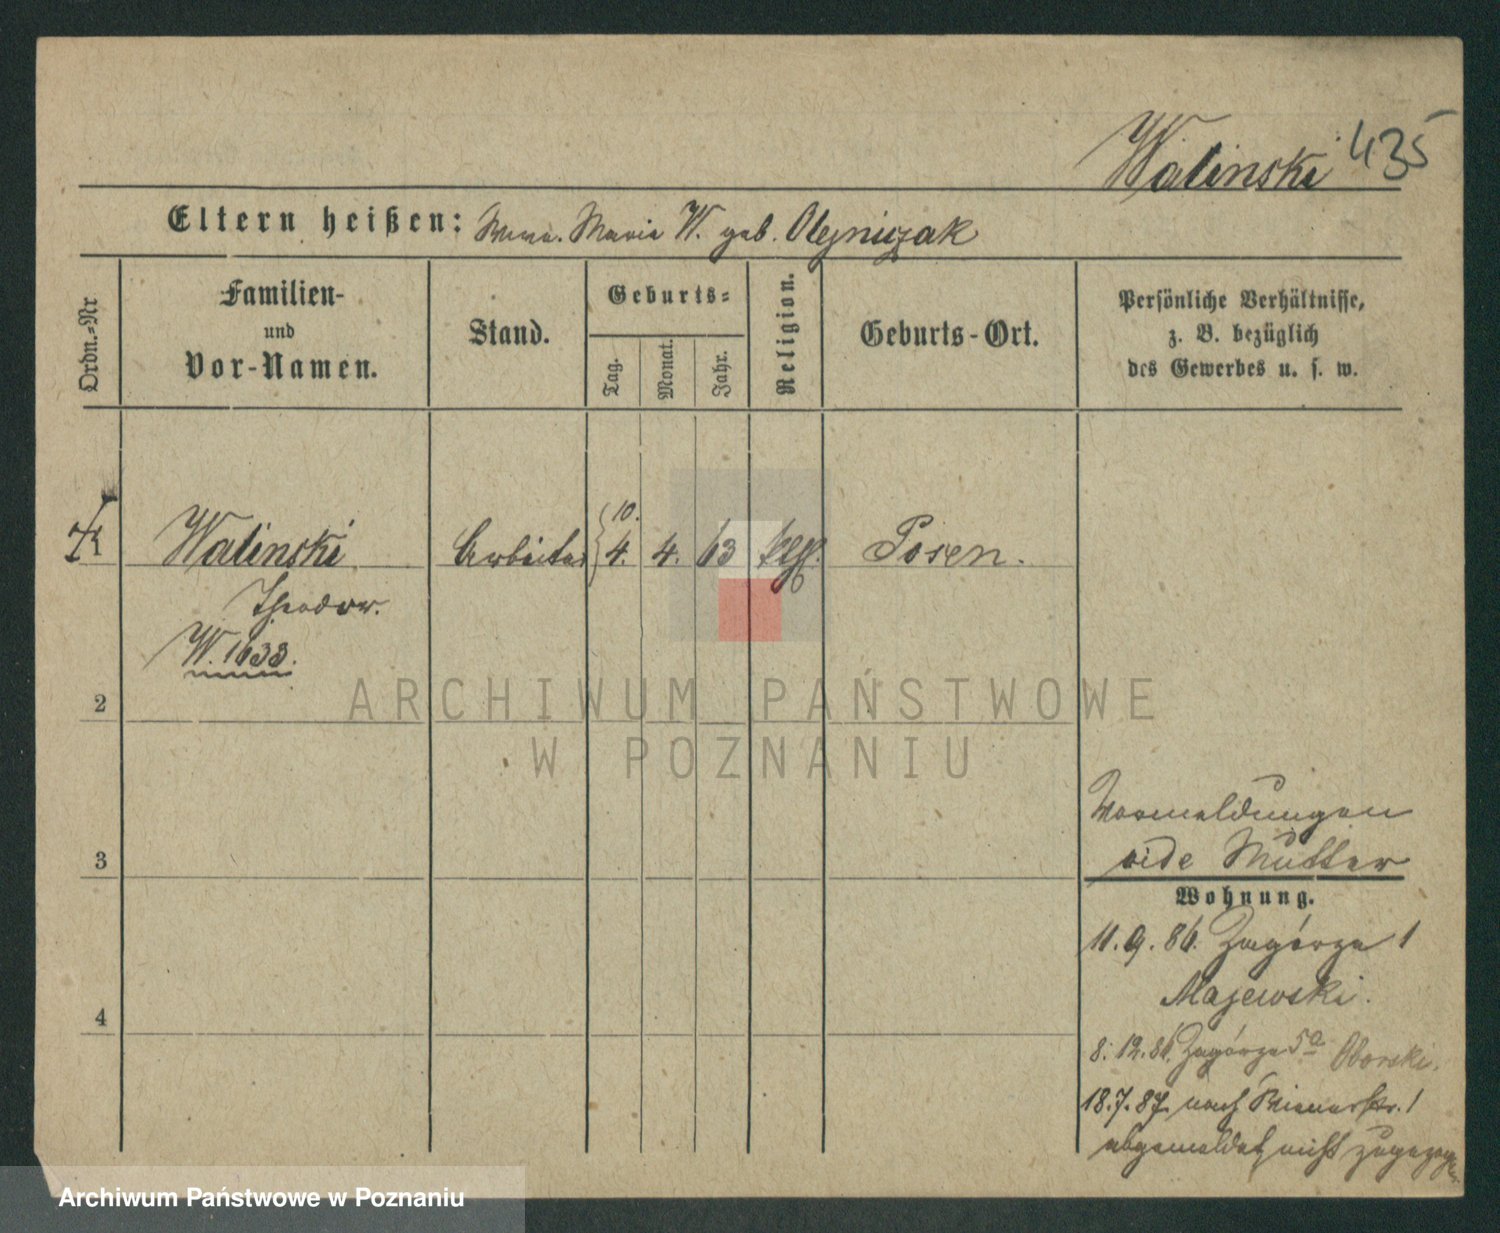 Walinski 435
Eltern heißen: Maria W. geb. Olejniczak
Ordn.-Nr
Familien-
und
Vor-Namen.
Stand.
Geburts-
Tag.
Monat.
Jahr.
Religion.
Geburts-Ort.
Persönliche Verhältnisse,
z. B. bezüglich
des Gewerbes u. s. w.
10.
Walinski Arbeiter 4. 4. 63 kth. Posen.
Theodor.
W. 1633.
2
ARCHIWUM PAŃSTWOWE
W POZNANIU
Vormeldungen
3
vide Mutter
Wohnung.
11.9.86. Zagórze 1
Majewski.
4
8.12.86. Zagórze 5a Oborski.
18.7.87. nach 1
abgemeldet nicht zugezogen
Archiwum Państwowe w Poznaniu